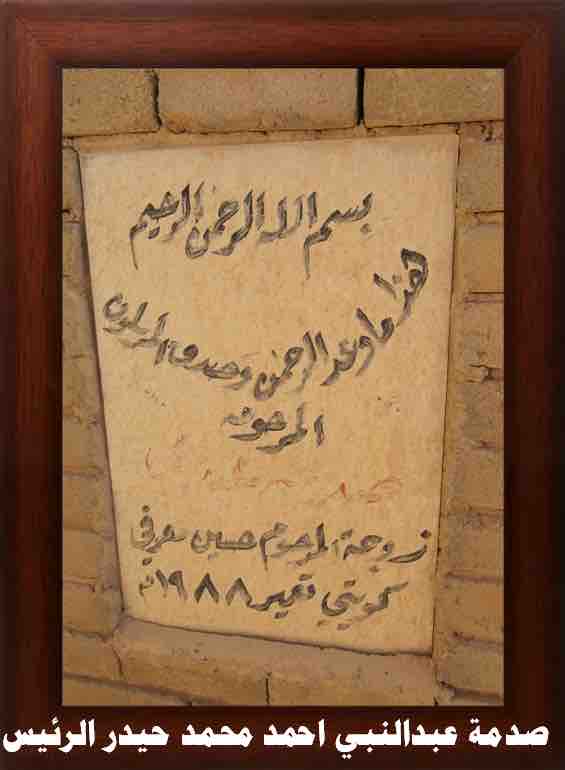 بسم الله الرحمن الرحيم
هذا ما وعد الرحمن وصدق المرسلون
المرحومه
زوجة المرحوم حسين معرفي
كويتي تعمير ١٩٨٨م
صدمة عبدالنبي احمد محمد حيدر الرئيس